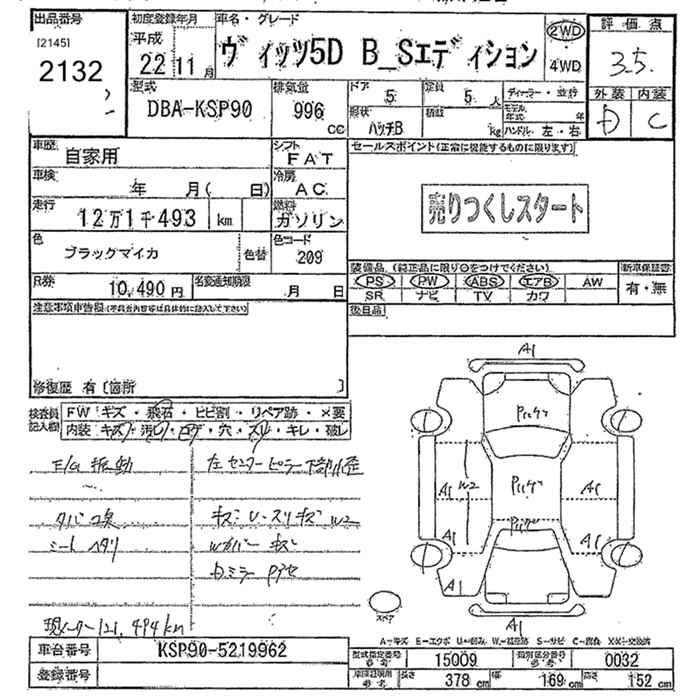 出品番号 初度登録年月 車名・グレード 2WD 評価点
[2145]
2132
平成
22 11月
ヴィッツ5D B_Sエディション
4WD
3.5
型式 排気量 ドア 定員
DBA-KSP90 996 cc
5 5人
形状 積載 kg ハンドル 左・右
ハッチB
外装 内装
D C
車歴 自家用 シフト FAT
セールスポイント(正常に機能するものに限ります)
車検 年 月( 日) 冷房 AC
走行 12万1千493 km 燃料 ガソリン
売りつくしスタート
色 ブラックマイカ 色替 色コード 209
装備品 (純正品に限り○をつけてください) 新車保証書
PS PW ABS エアB AW 有・無
SR ナビ TV カワ
R券 10,490円 名変通知期限 月 日
後日品
注意事項申告欄
修復歴 有〔箇所 〕
検査員記入欄
FW キズ・飛石・ヒビ割・リペア跡・×要
内装 キズ・汚レ・コゲ・穴・スレ・キレ・破レ
E/G 振動 左センターピラー下部小歪
タバコ臭 キズ・U・スリキズ W2
シートヘタリ Wカバー キズ
現メーター121,494km
A1
A1 W2 A1
A1 A1
A1
スペア
車台番号 KSP90-5219962
登録番号
型式指定番号 15009 類別区分番号 0032
長さ 378 cm 幅 169 cm 高さ 152 cm